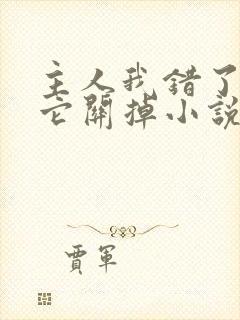 主人我错了
它關掉小說
賈軍